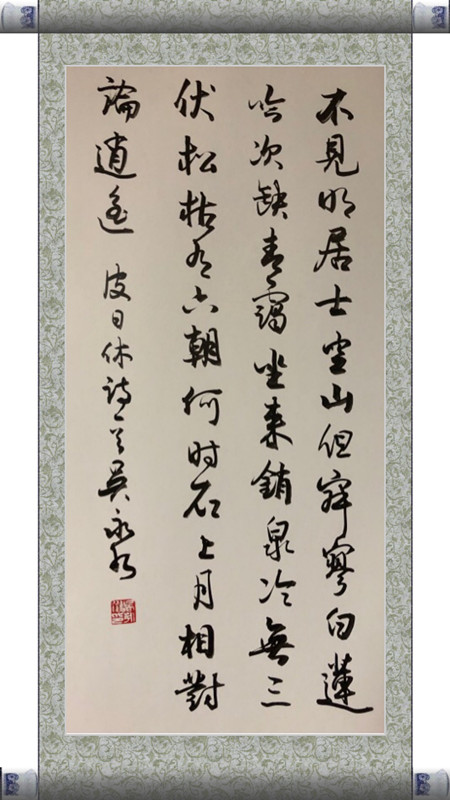 不見明居士空山但寂寥白蓮
吟次缺青靄坐來銷泉冷無三
伏松枯有六朝何時石上月相對
論逍遙 皮日休詩一首 吳永